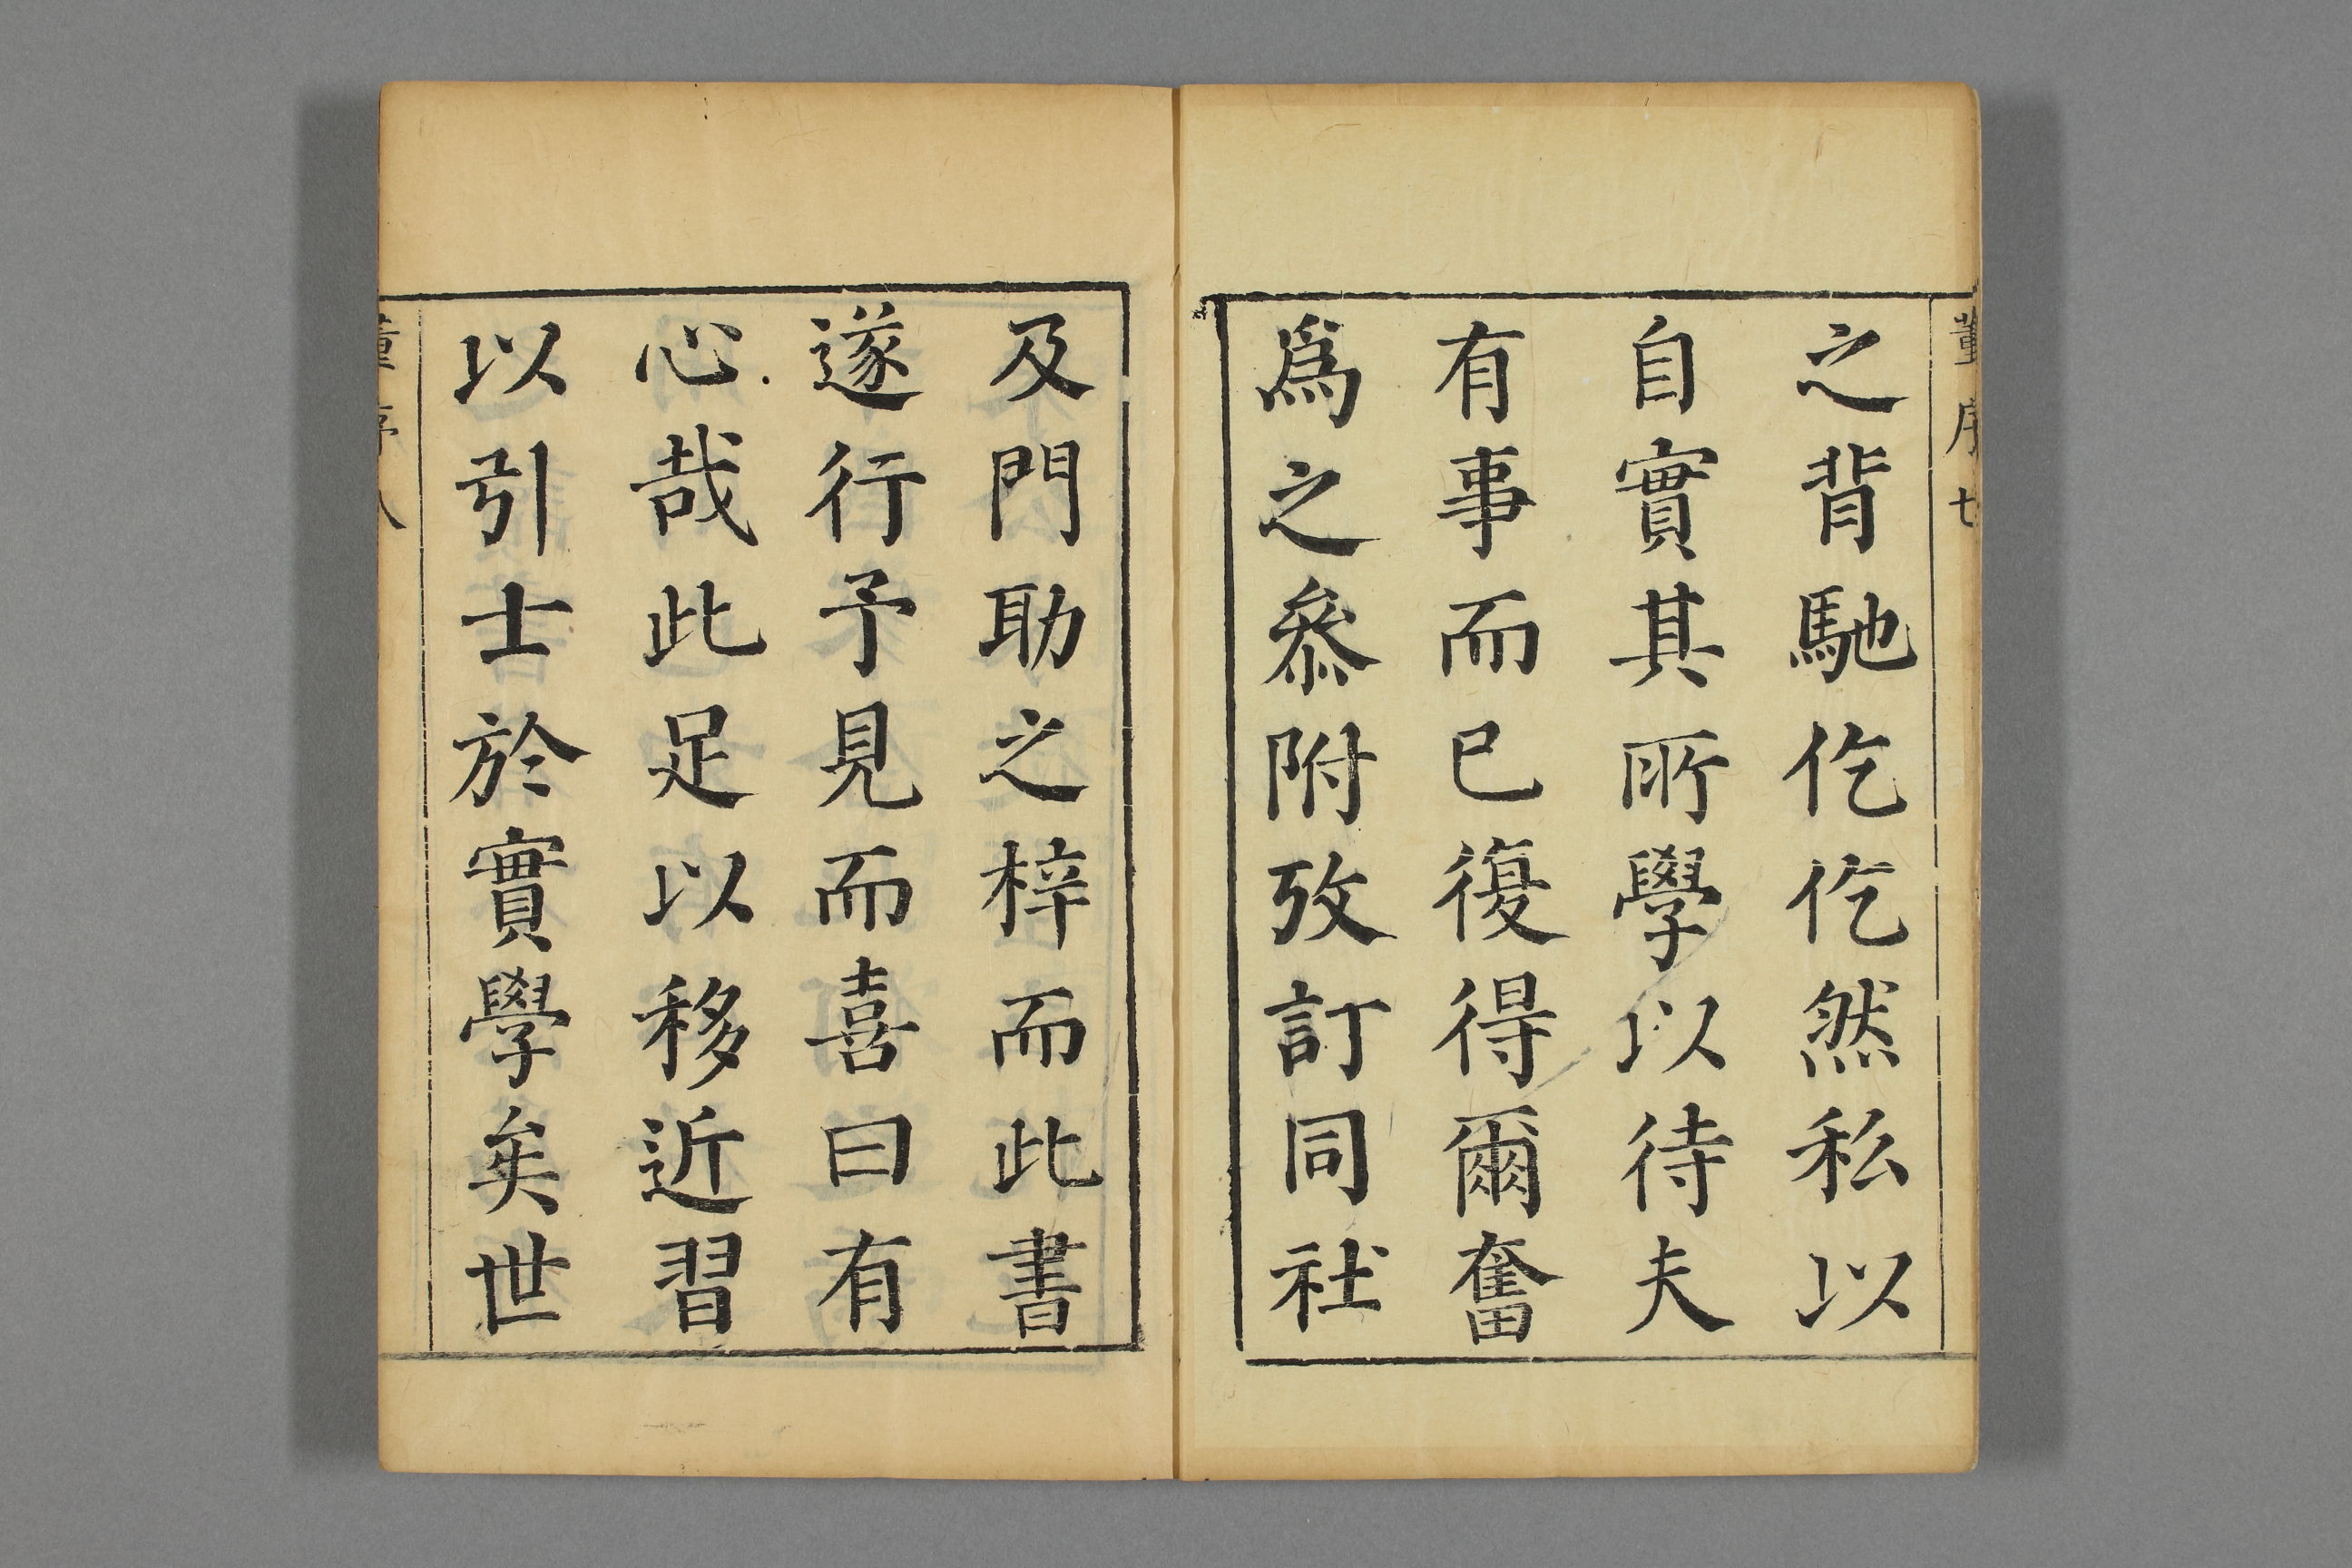 董序七
之背馳仡仡然私以
自實其所學以待夫
有事而已復得爾奮
為之叅附攷訂同社
及門助之梓而此書
遂行予見而喜曰有
心哉此足以移近習
以引士於實學矣世
董序八